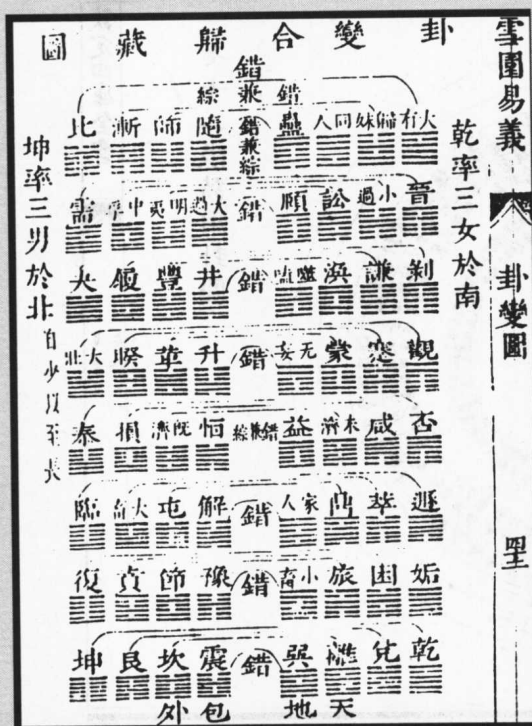 雪園易義
卦變圖
卦變合歸藏圖
乾率三女於南
錯
錯兼綜
大有 歸妹 同人 蠱 錯兼綜 隨 師 漸 比
晉 小過 訟 頤 錯 大過 明夷 中孚 需
剝 謙 渙 噬嗑 錯 井 豐 履 夬
觀 蹇 蒙 无妄 錯 升 革 睽 大壯
否 咸 未濟 益 錯兼綜 恒 既濟 損 泰
遯 萃 鼎 家人 錯 解 屯 大畜 臨
姤 困 旅 小畜 錯 豫 節 賁 復
乾 兌 離 巽 錯 震 坎 艮 坤
天地包外
坤率三男於北
自少以至長